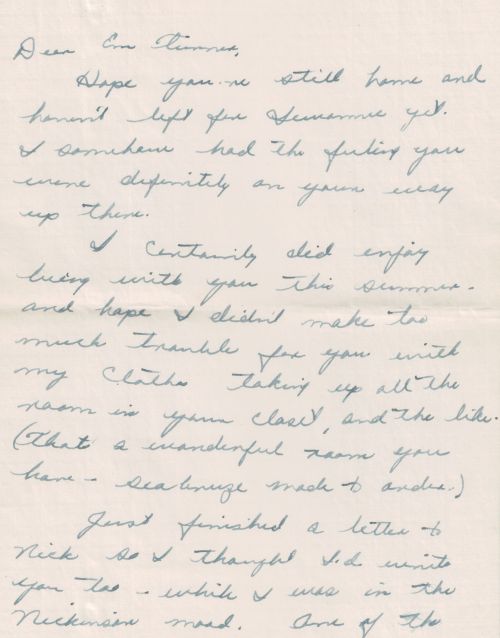 Dear Em Turner,
Hope you're still home and
haven't left for Sewannee yet.
I somehow had the feeling you
were definitely on your way
up there.
I certainly did enjoy
being with you this summer -
and hope I didn't make too
much trouble for you with
my clothes taking up all the
room in your closet, and the like.
(That's a wonderful room you
have - seabreeze made to order.)
Just finished a letter to
Nick so I thought I'd write
you too - while I was in the
Nickinson mood. One of the